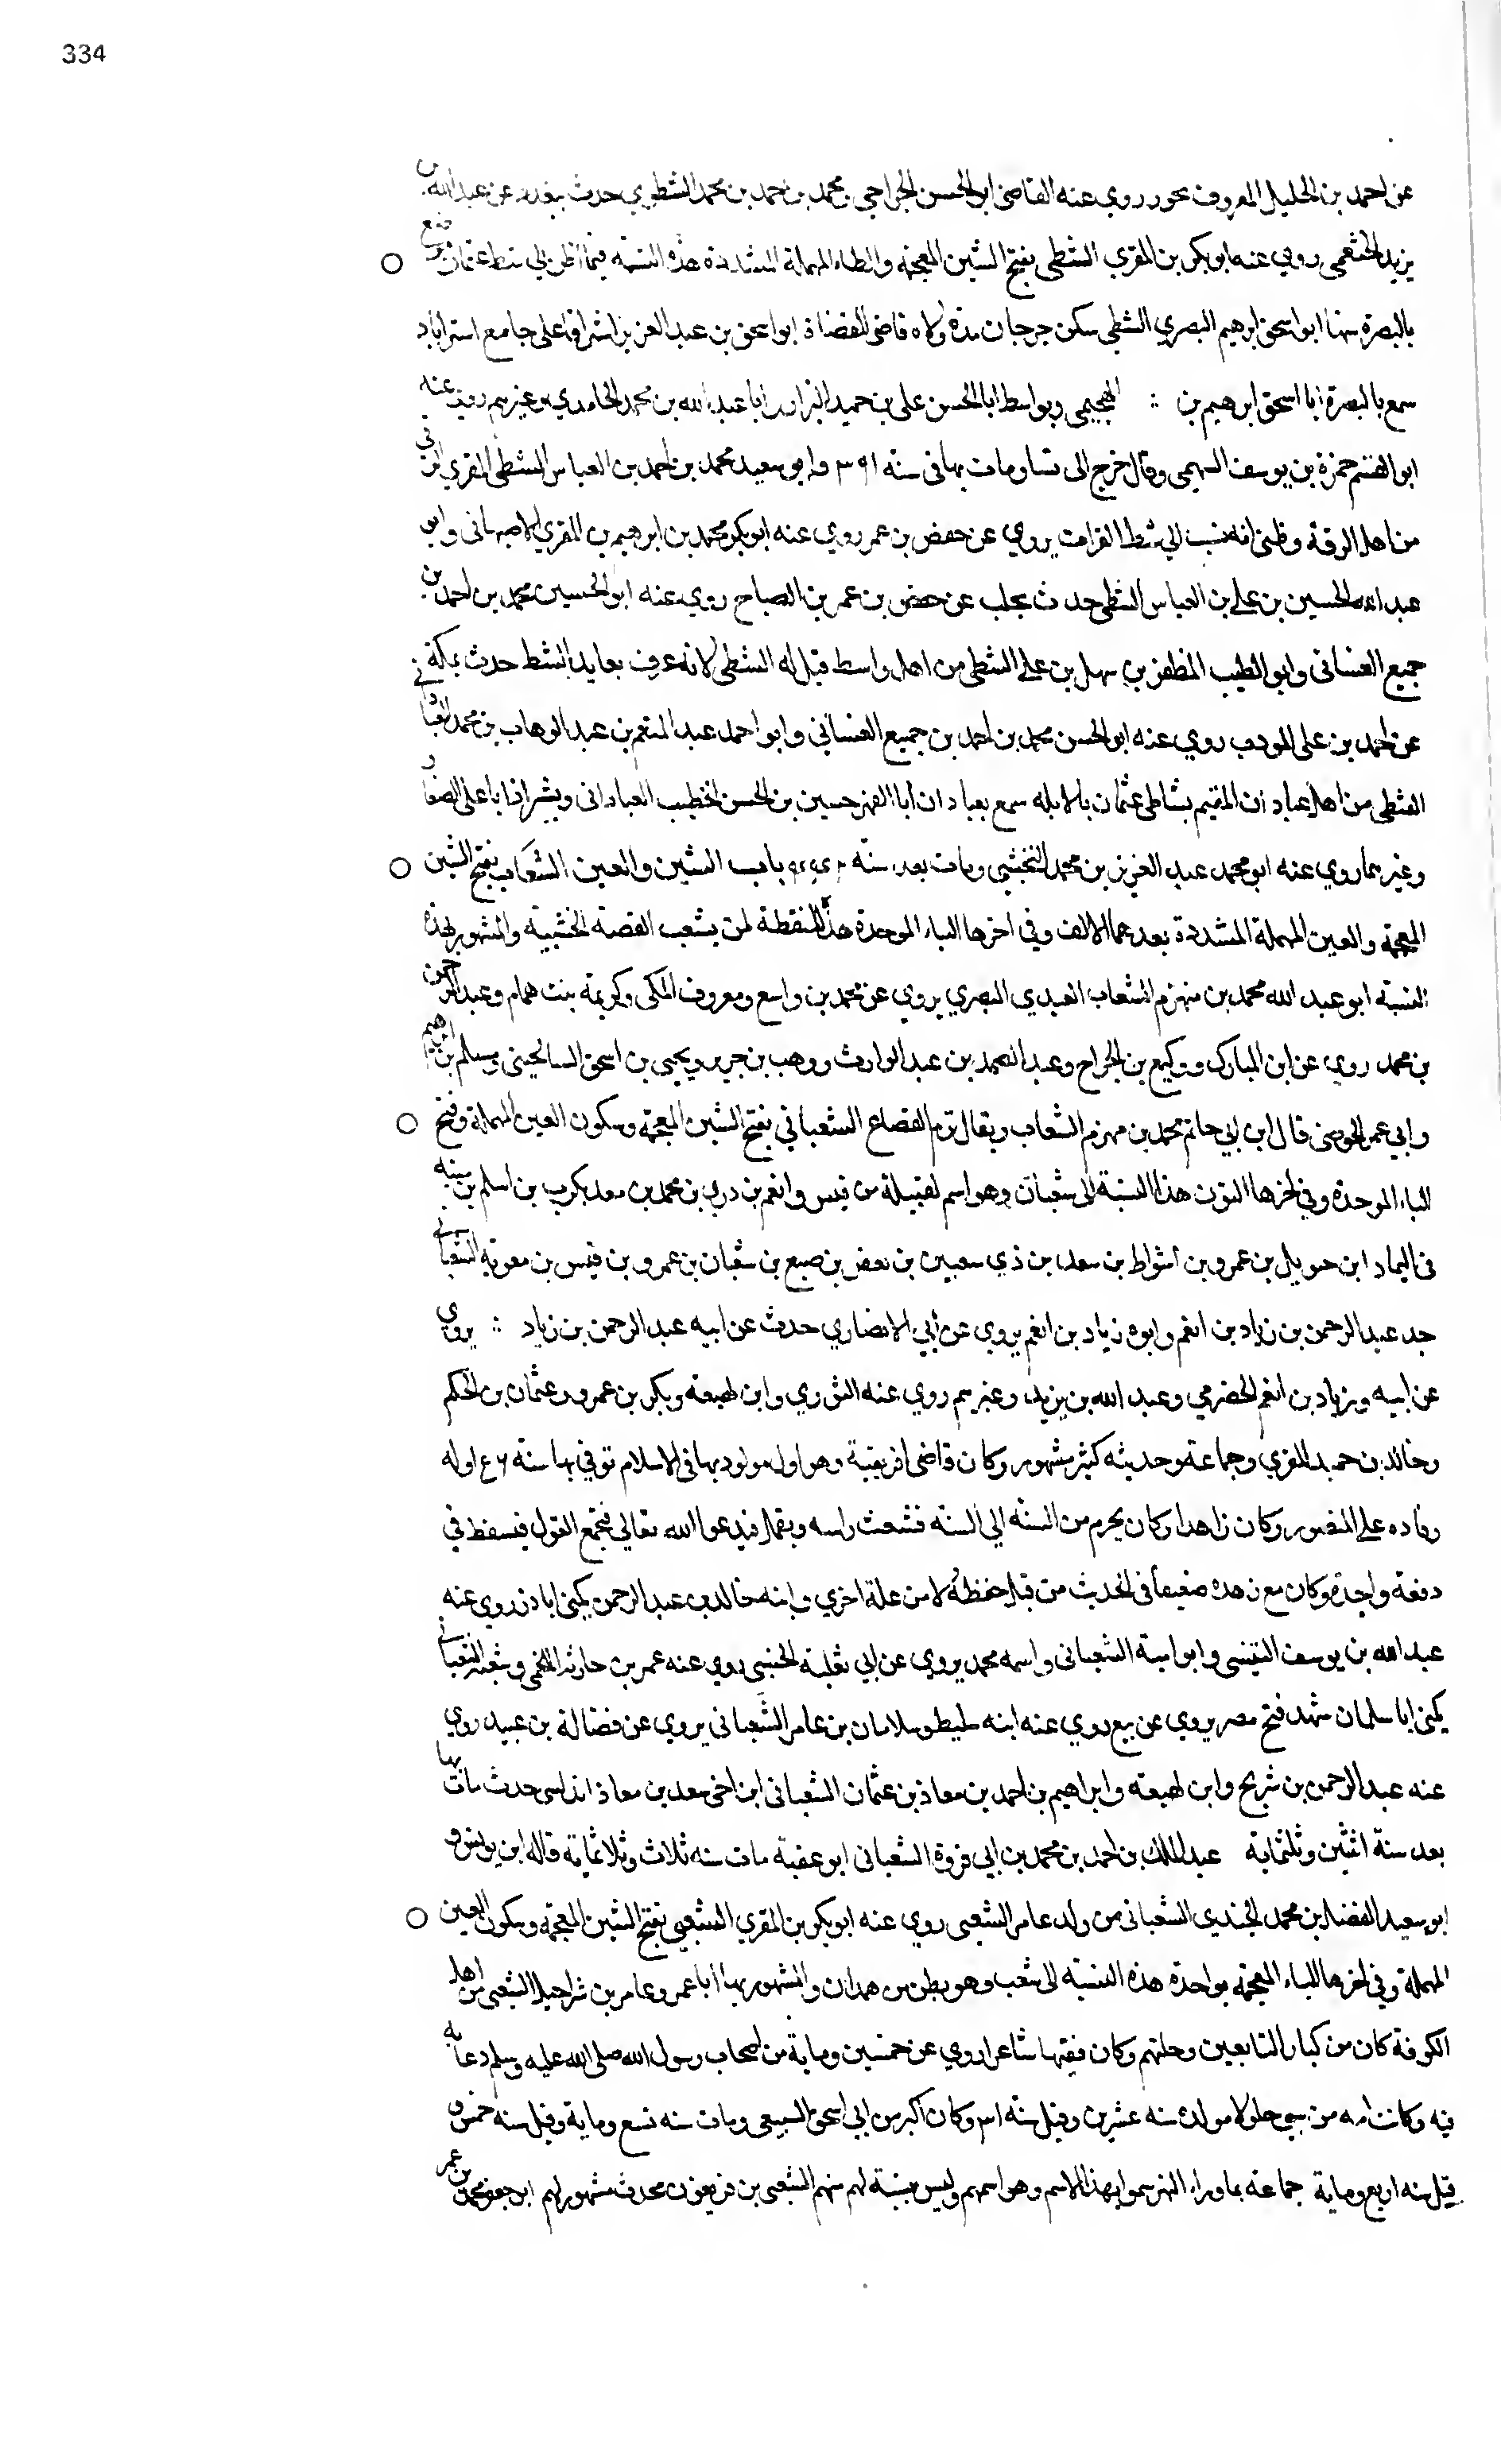 334
عن احمد بن الخليل المعروف بحور روي عنه القاضي ابو الحسن الجراحي ومحمد بن احمد بن محمد الشطوي حدث عن عبد الله بن
يزيد الخثعمي روي عنه ابو بكر بن المقري الشطي بفتح الشين المعجمة والطاء المهملة المشددة هذه النسبة فيما اظن الي شط عثمان موضع
بالبصرة منها ابو اسحق ابرهيم البصري الشطي سكن جرجان مدة ولاه قاضي القضاة ابو اسحق بن عبد العزيز اشرافا على جامع استراباد
سمع بالبصرة ابا اسحق ابرهيم بن :: الهجيمي وبواسط ابا الحسن علي بن حميد البزاز وابا عبد الله بن محمد الحامدي وغيرهم روي عنه
ابو القسم حمزة بن يوسف السهمي وقال خرج الى نسا ومات بها في سنة ٣٩١ وابو سعيد محمد بن احمد بن العباس الشطي المقري
من اهل الرقة وظني انه نسب الي شط الفرات يروي عن حفص بن عمر روي عنه ابو بكر محمد بن ابرهيم بن المقري الاصبهاني وابو
عبد الله الحسين بن علي بن العباس الشطي حدث بحلب عن حفص بن عمر بن الصباح روي عنه ابو الحسين محمد بن احمد بن
جميع الغساني وابو الطيب المظفر بن سهل بن علي الشطي من اهل واسط قيل له الشطي لانه عرف بعابد الشط حدث بمكة
عن احمد بن علي المودب روي عنه ابو الحسن محمد بن احمد بن جميع الغساني وابو احمد عبد المنعم بن عبد الوهاب بن محمد
الشطي من اهل عبادان المقيم بشاطي عثمان بالابله سمع بعبادان ابا الفهز حسين بن الحسن الخطيب العباداني وبشيراز ابا علي الصفار
وغيرهما روي عنه ابو محمد عبد العزيز بن محمد النخشبي ومات بعد سنة باب الشين والعين الشعاب بفتح الشين
المعجمة والعين المهملة المشددة بعدهما الالف وفي اخرها الباء الموحدة هذا اللفظة لمن يشعب القصعة الخشبية والمشهور بهذه
النسبة ابو عبد الله محمد بن مهزم الشعاب العبدي البصري يروي عن محمد بن واسع ومعروف المكي وكريمة بنت همام وعبد الرحمن
بن محمد روي عن ابن المبارك ووكيع بن الجراح وعبد الصمد بن عبد الوارث ووهب بن جرير ويحيى بن اسحق السالحيني ومسلم بن ابرهيم
وابي عمر الحوضي قال ابن ابي حاتم محمد بن مهزم الشعاب ويقال ترم القصاع الشعباني بفتح الشين المعجمة وسكون العين المهملة وفتح
الباء الموحدة وفي اخرها النون هذا النسبة الى شعبان وهو اسم لقبيلة من قيس وانعم بن دري بن محمد بن معديكرب بن اسلم بن منبه
في اليماد ابن حويل بن عمرو بن اشواط بن سعد بن ذي سعبين بن يعض بن صبع بن شعبان بن عمرو بن قيس بن معوية الشعباني
جد عبد الرحمن بن زياد بن انعم وابوه زياد بن انعم يروي عن ابي الانصاري حدث عن ابيه عبد الرحمن بن زياد :: يروي
عن ابيه وزياد بن انعم الحضرمي وعبد الله بن يزيد وغيرهم روي عنه الثوري وابن لهيعة وبكر بن عمرو وعثمان بن الحكم
وخالد بن حميد المقري وجماعة وحديثه كثير مشهور وكان قاضي افريقية وهو اول مولود بها في الاسلام توفي بها سنة اوله
وفاده على المنصور وكان زاهدا وكان يحرم من السنة الي السنة فتشعث راسه ويقمل فيدعوا الله تعالى فيجمع القمل فيسقط في
دفعة واحدة وكان مع زهده ضعيفا في الحديث من قبل حفظه لا من علة اخري وابنه خالد بن عبد الرحمن يكنى ابا ذر روي عنه
عبد الله بن يوسف التنيسي وابو امية الشعباني واسمه محمد يروي عن ابي ثعلبة الخشني روي عنه عمر بن حارثة اللخمي وشعبة الشعباني
يكنى ابا سلمان شهد فتح مصر يروي عن تبيع روي عنه ابنه سليط وسلامان بن عامر الشعباني يروي عن فضالة بن عبيد روي
عنه عبد الرحمن بن شريح وابن لهيعة وابراهيم بن احمد بن معاذ بن عثمان الشعباني ابن اخي سعد بن معاذ اندلسي حدث مات بها
بعد سنة اثنتين وثلثماية عبد الملك بن احمد بن محمد بن ابي فروة الشعباني ابو عقبة مات سنه ثلاث وثلاثماية قاله ابن يونس و
ابو سعيد المفضل بن محمد الجندي الشعباني من ولد عامر الشعبي روي عنه ابو بكر بن المقري الشعبي بفتح الشين المعجمة وسكون العين
المهملة وفي اخرها الباء المعجمة بواحدة هذه النسبة الى شعب وهو بطن من همدان والمشهور بها ابا عمرو عامر بن شراحيل الشعبي من اهل
الكوفة كان من كبار التابعين وجلتهم وكان فقيها شاعرا روي عن خمسين وماية من اصحاب رسول الله صلى الله عليه وسلم دعابه
فيه وكانت امه من سبي جلولا مولده سنه عشرين وقيل سنة ٣١ وكان اكبر من ابي اسحق السبيعي ومات سنه تسع وماية وقيل سنه خمس و
قيل سنه اربع وماية جماعة بما وراء النهر سموا بهذا الاسم وهو اسمهم وليس بنسبة لهم منهم الشعبي بن فريغون محدث مشهور لهم ابو جعفر محمد بن عمر